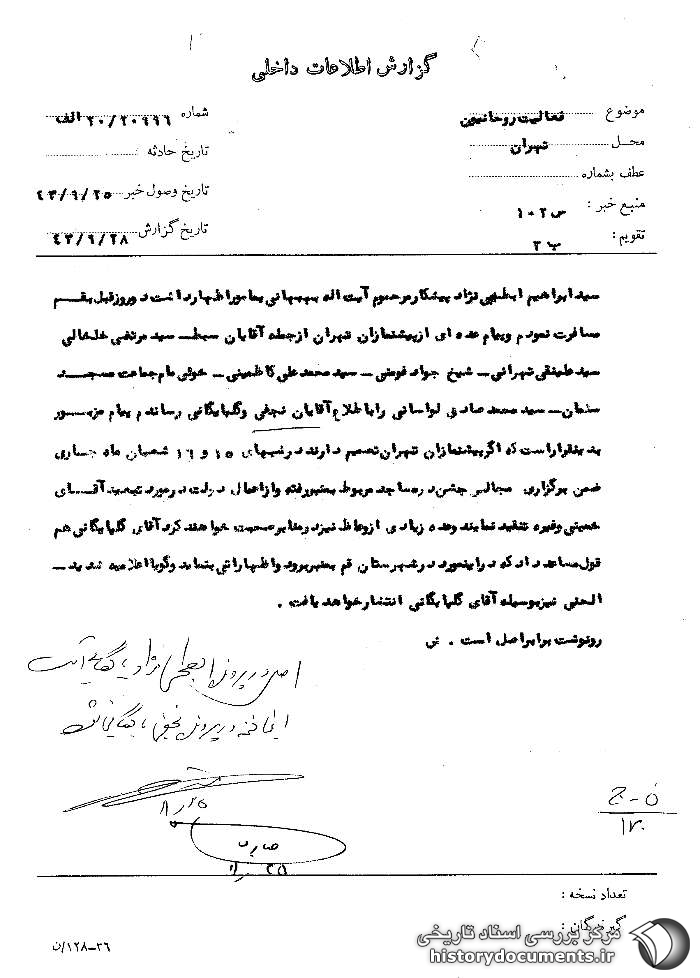 گزارش اطلاعات داخلی
موضوع فعالیت روحانیون
شماره ۲۰/۲۰۹۹۶ الف
محل تهران
تاریخ حادثه
عطف بشماره
تاریخ وصول خبر ۴۳/۹/۲۵
منبع خبر : س ۱۰۲
تاریخ گزارش ۴۳/۹/۲۸
تقویم : ب ۲
سید ابراهیم ابطحی نژاد پیشکار مرحوم آیت اله بهبهانی بمامور اظهار داشت دو روز قبل بقم
مسافرت نمودم و پیام عده ای از پیشنمازان تهران از جمله آقایان سبط ـ سید مرتضی خلخالی
سید علینقی تهرانی ـ شیخ جواد فومنی ـ سید محمد علی کاظمینی ـ خوئی امام جماعت مسجد
سنمان ـ سید محمد صادق لواسانی را باطلاع آقایان نجفی و گلپایگانی رساندم پیام مزبور
بدینقرار است که اگر پیشنمازان تهران تصمیم دارند در شبهای ۱۵ و ۱۶ شعبان ماه جاری
ضمن برگزاری مجالس جشن در مساجد مربوط بمنبر رفته و از اعمال دولت در مورد تبعید آقای
خمینی وغیره تنقید نمایند وعده زیادی از وعاظ نیز در منابر صحبت خواهند کرد آقای گلپایگانی هم
قول مساعد داد که در اینمورد در شهرستان قم بمنبر برود و اظهاراتی بنماید و گویا اعلامیه شدید ـ
الحنی نیز بوسیله آقای گلپایگانی انتشار خواهد یافت .
رونوشت برابر اصل است . ش
اصل در پرونده ابطحی نژاد بایگانی است
در پرونده نجفی بایگانی شود
ن - ج
۱۲۰
تعداد نسخه :
گیرندگان :
۳۶-۱۲۸/ن
مرکز بررسی اسناد تاریخی
historydocuments.ir